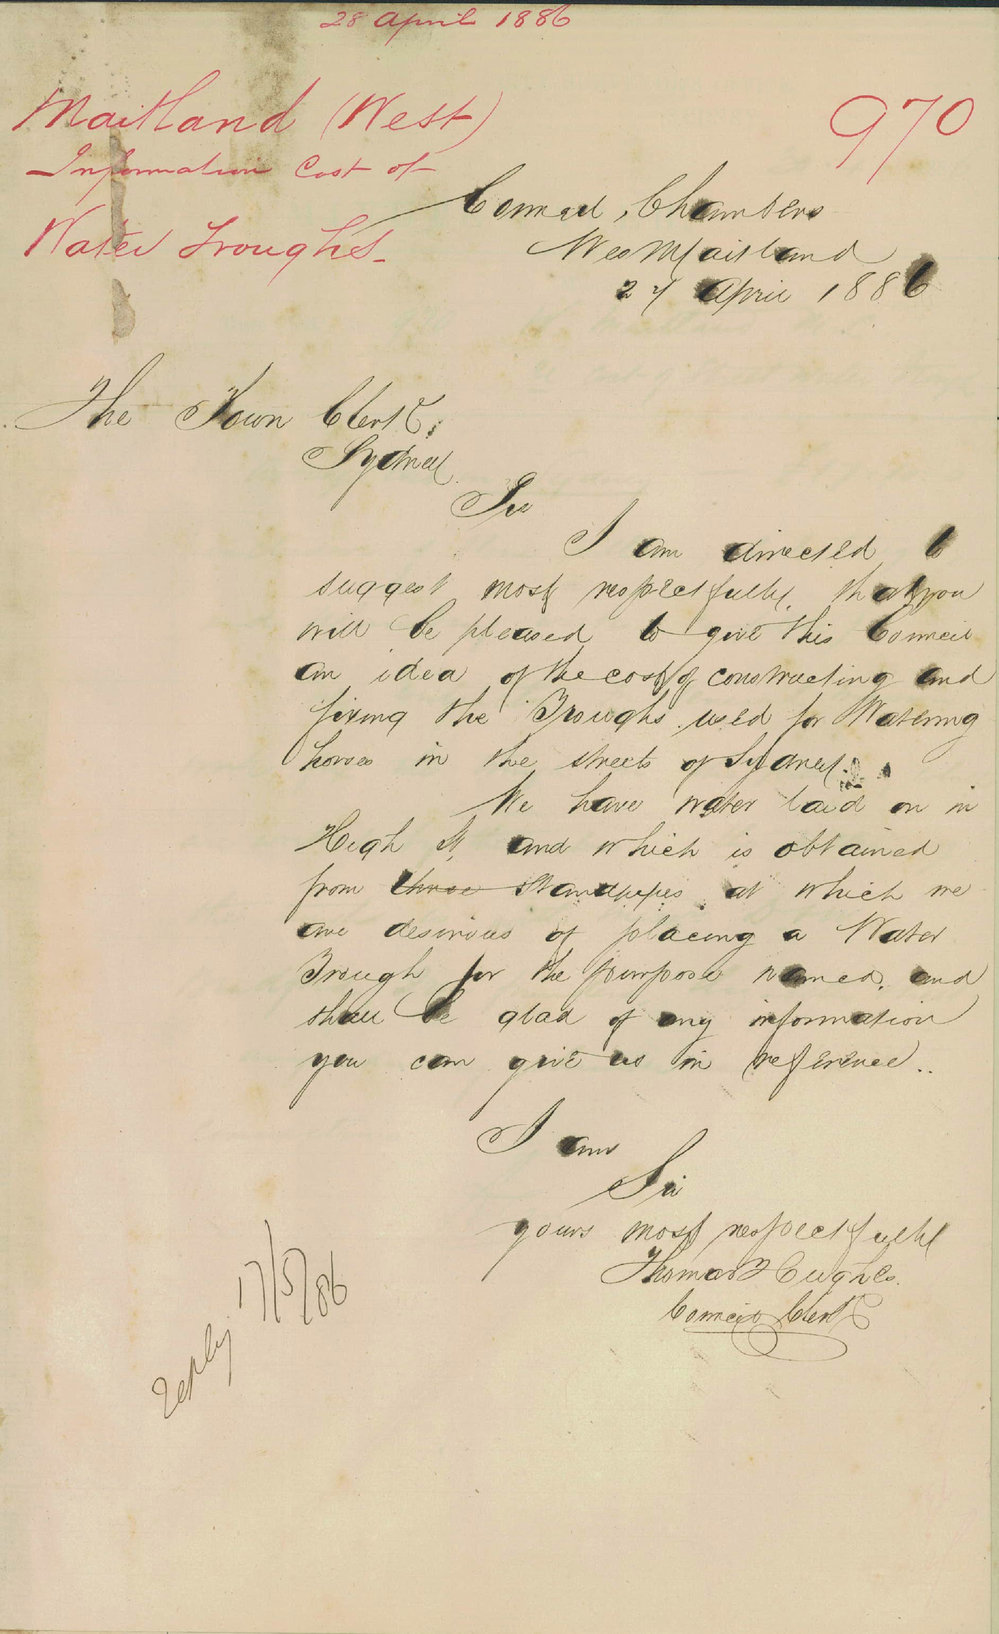 28 April 1886
Maitland (West)
970
Information Cost of
Water Troughs.
Council Chambers
West Maitland
27 April 1886
The Town Clerk,
Sydney.
Sir
I am directed to
suggest most respectfully, that you
will be pleased to give this Council
an idea of the cost of constructing and
fixing the Troughs used for Watering
horses in the streets of Sydney.
We have water laid on in
High St, and which is obtained
from three standpipes at which we
are desirous of placing a Water
Trough for the purpose named, and
shall be glad of any information
you can give us in reference..
I am
Sir
yours most respectfully
Thomas Hughes.
Council Clerk
reply 17/5/86